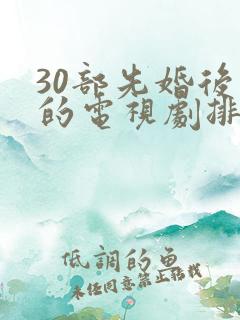 30部先婚後
的電視劇排
低調的魚
未經同意禁止搭載